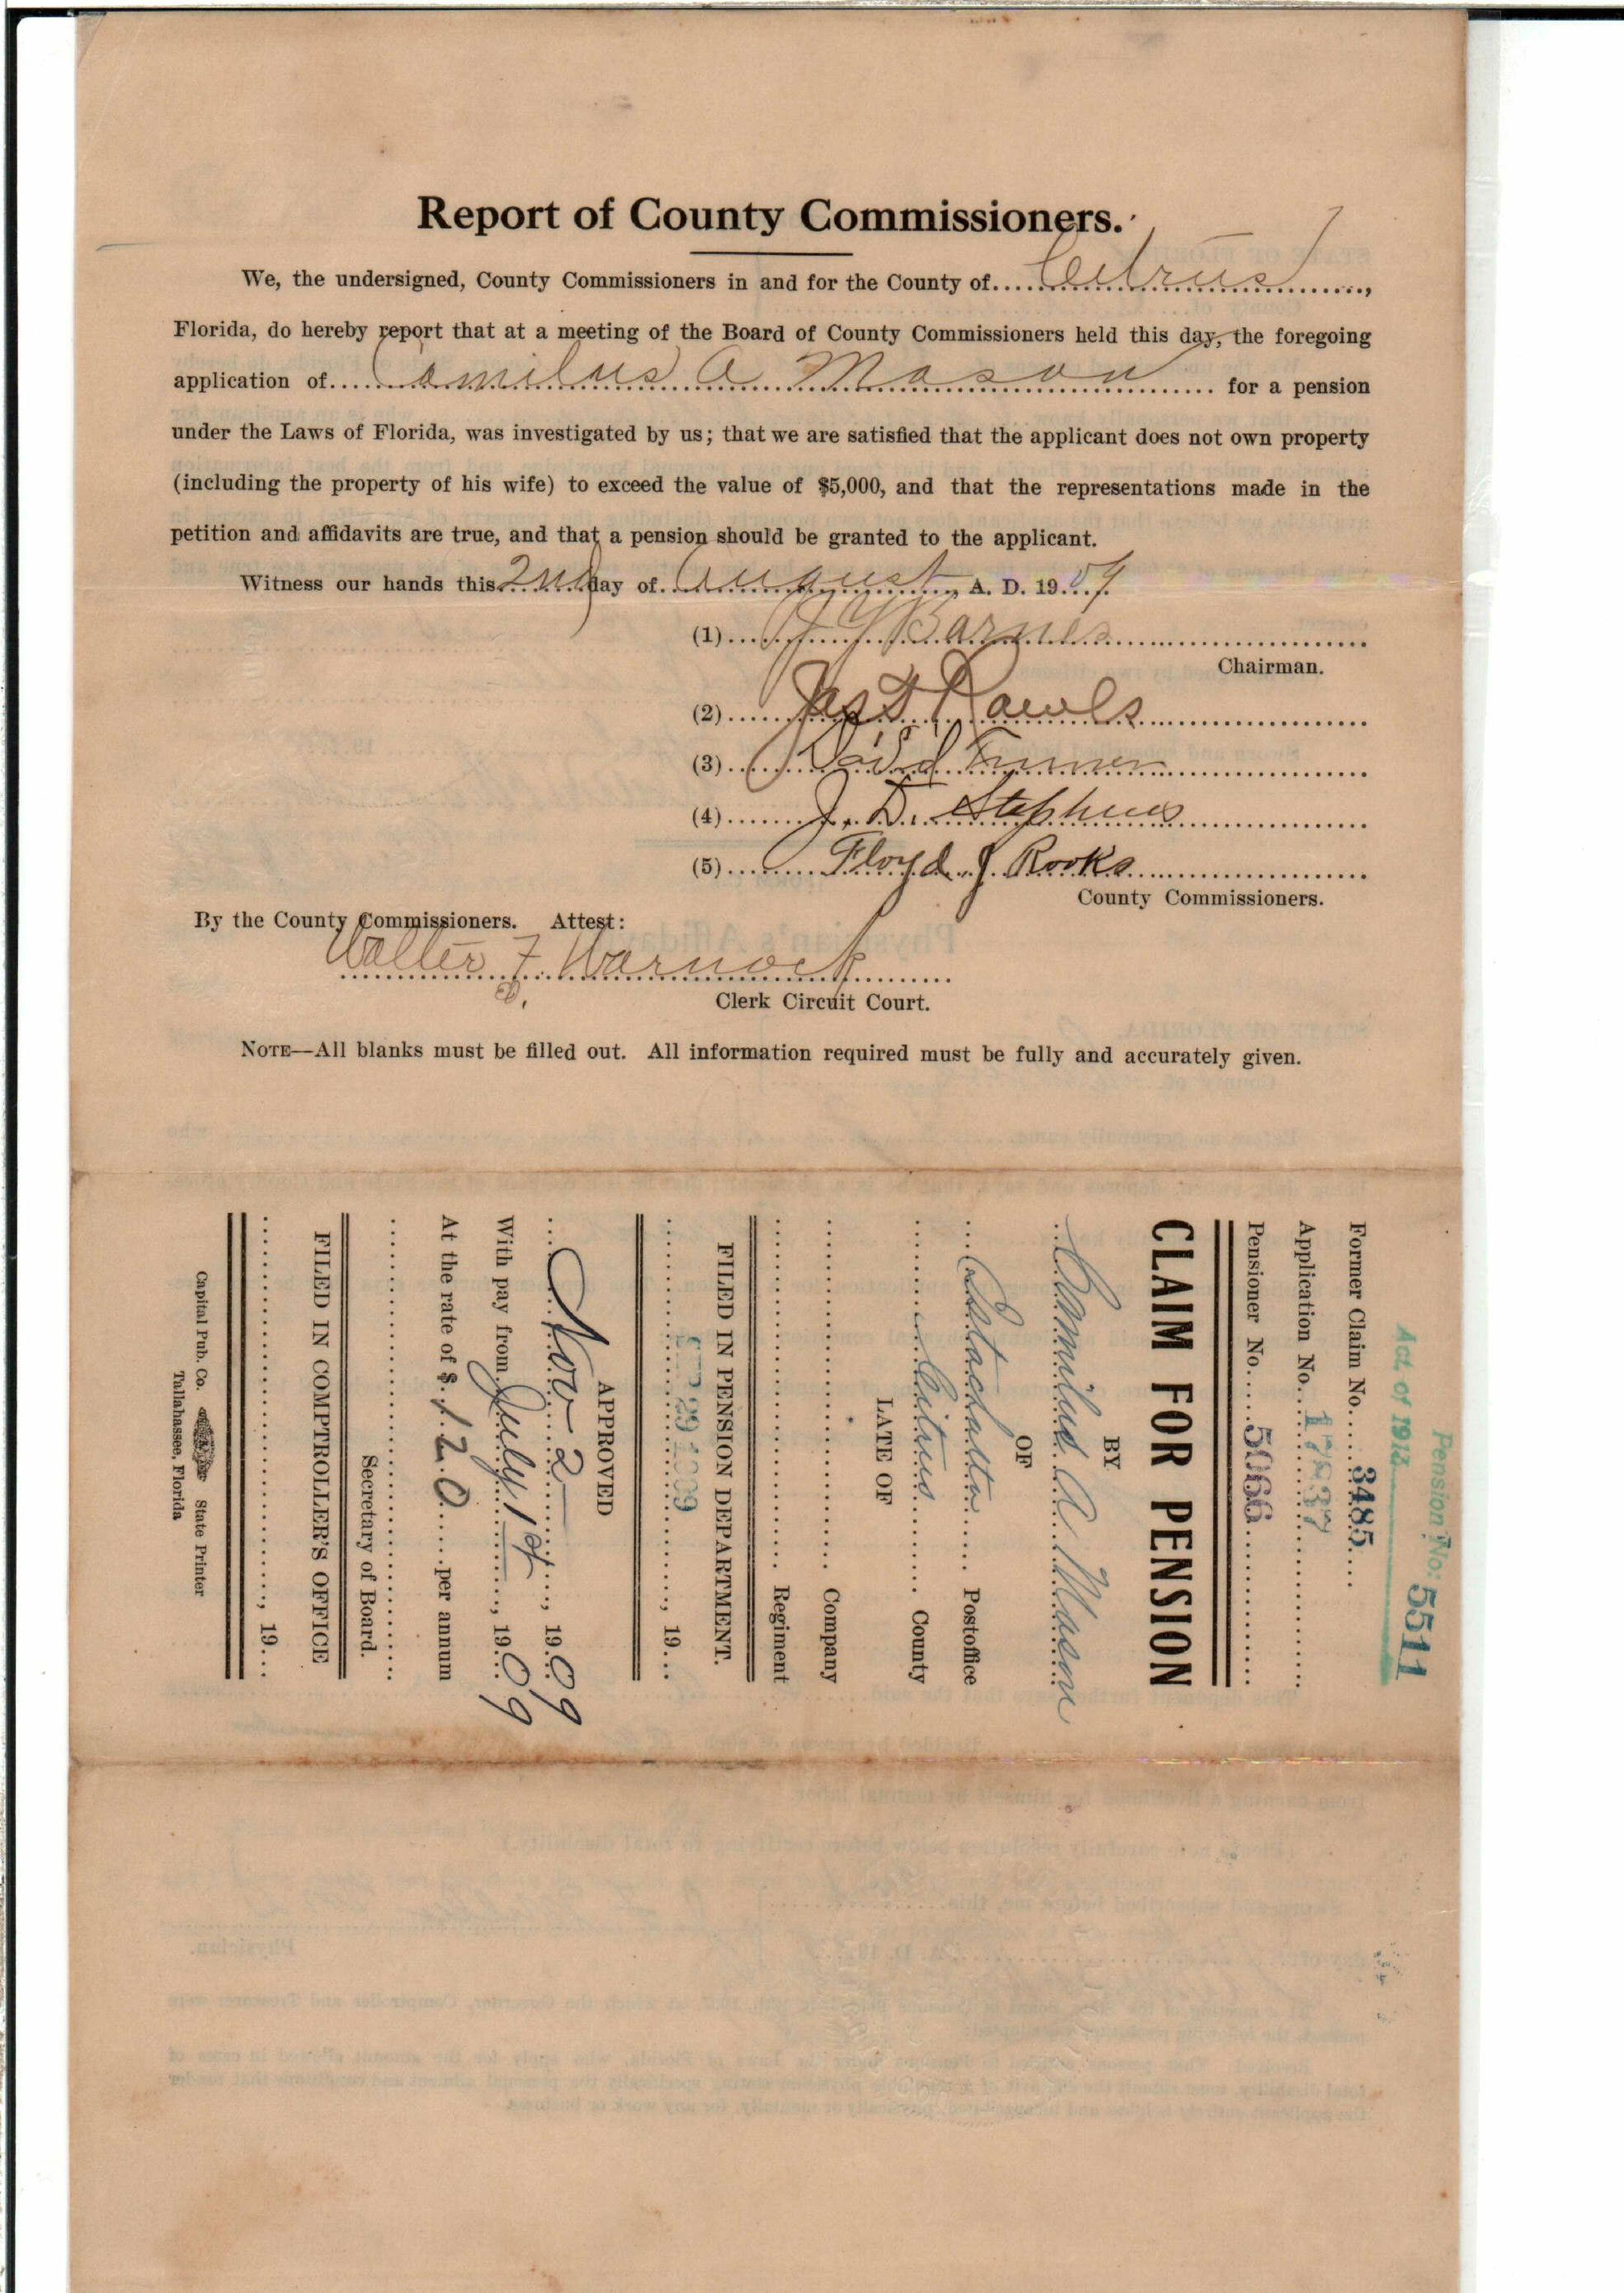 Report of County Commissioners.
We, the undersigned, County Commissioners in and for the County of Citrus,
Florida, do hereby report that at a meeting of the Board of County Commissioners held this day, the foregoing
application of Camilus A Mason for a pension
under the Laws of Florida, was investigated by us; that we are satisfied that the applicant does not own property
(including the property of his wife) to exceed the value of $5,000, and that the representations made in the
petition and affidavits are true, and that a pension should be granted to the applicant.
Witness our hands this 2nd day of August, A. D. 1909
(1) Barnes
Chairman.
(2) Jas T Rawls
(3) David
(4) J. D. Stephens
(5) Floyd J. Rooks
County Commissioners.
By the County Commissioners. Attest:
Walter F. Warnock
Clerk Circuit Court.
NOTE—All blanks must be filled out. All information required must be fully and accurately given.
Pension No: 5511
Act of 1913
Former Claim No. 3485
Application No.
Pensioner No. 5066
CLAIM FOR PENSION
BY
Camilus A. Mason
OF
Postoffice
Citrus County
LATE OF
Company
Regiment
FILED IN PENSION DEPARTMENT.
29 1909, 19
APPROVED
Nov 2, 1909
With pay from July 1st, 1909
At the rate of $120 per annum
Secretary of Board.
FILED IN COMPTROLLER'S OFFICE
, 19
Capital Pub. Co. State Printer
Tallahassee, Florida